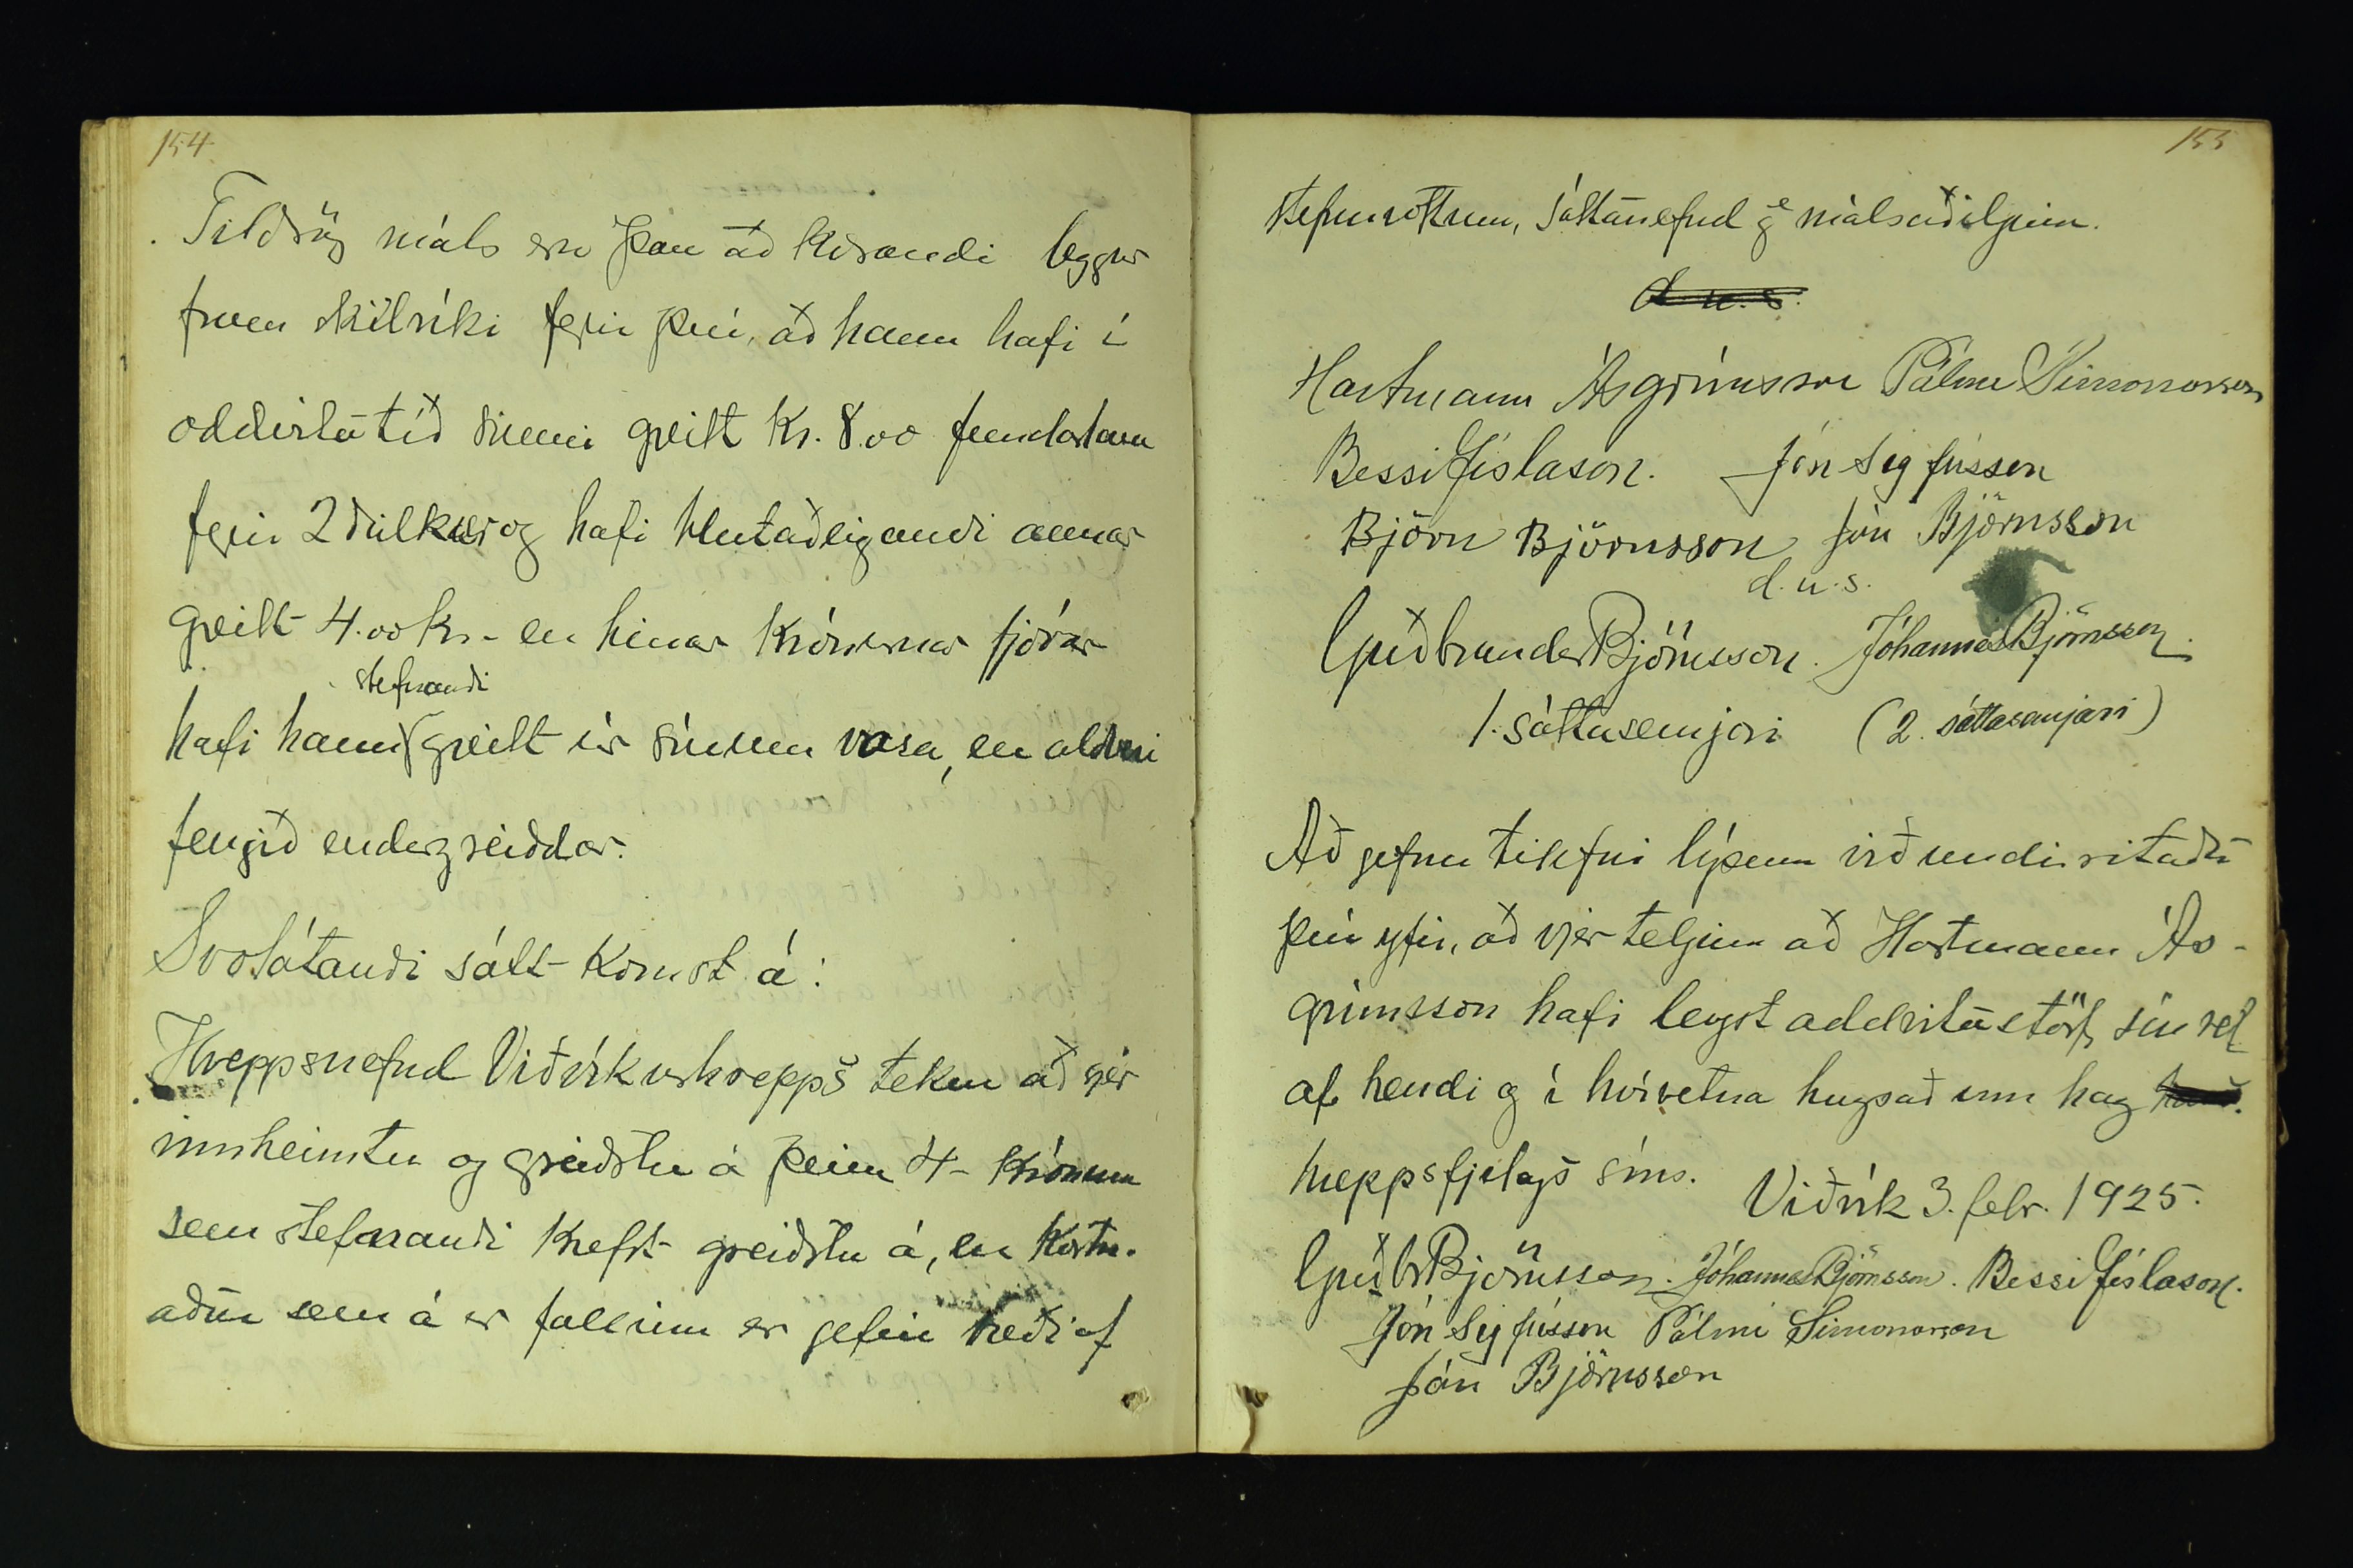 154
Tildrög máls eru þau að kærandi leggur
fram skilríki fyrir því, að hann hafi í
oddvitatíð sinni greitt kr. 8.00 fundarlaun
fyrir 2 dilka og hafi hlutaðeigandi annar
greitt 4.00 kr. - en hinar krónurnar fjórar
stefnandi
hafi hann greitt úr sínum vasa, en aldrei
fengið endurgreiddar.
Svolátandi sátt komst á:
Hreppsnefnd Viðvíkurhrepps tekur að sjer
innheimtu og greiðslu á þeim 4 - krónum
sem stefnandi krefst greiðslu á, en kostn.
aður sem á er fallinn er gefin eftir af
155
stefnuvottum, sáttanefnd og málsaðiljum.
d. u. s.
Hartmann Ásgrímsson Pálmi Símonarson
Bessi Gíslason. Jón Sigfússon
Björn Björnsson Jón Björnsson
d. u. s.
Guðbrandur Björnsson. Jóhannes Björnsson.
1. sáttasemjari (2. sáttasemjari)
Að gefnu tilefni lýsum við undirritaðir
því yfir, að vjer teljum að Hartmann Ás-
grímsson hafi leyst oddvitastörf sín vel
af hendi og í hvívetna hugsað um hag
hreppsfjelags síns. Viðvík 3. febr. 1925.
Guðbr Björnsson. Jóhannes Björnsson. Bessi Gíslason.
Jón Sigfússon Pálmi Símonarson
Jón Björnsson